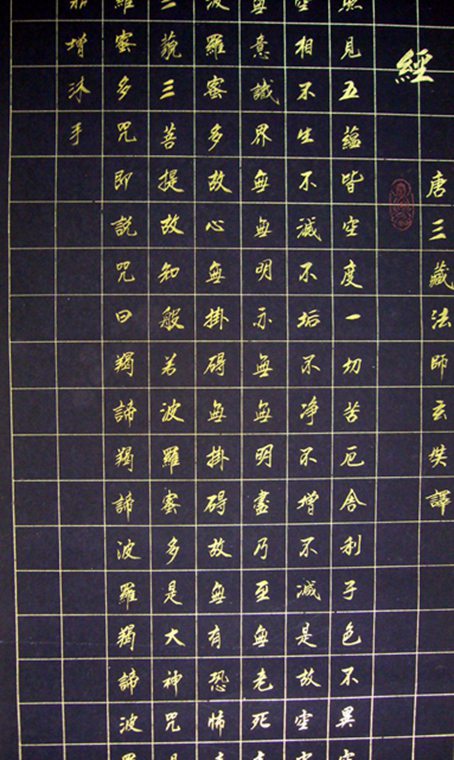 唐三藏法師玄奘譯
經
見五蘊皆空度一切苦厄舍利子色不異空
空相不生不滅不垢不净不增不減是故空
無意識界無無明亦無無明盡乃至無老死
波羅蜜多故心無掛碍無掛碍故無有恐怖
三藐三菩提故知般若波羅蜜多是大神咒是
羅蜜多咒即說咒曰揭諦揭諦波羅揭諦波羅
增沐手